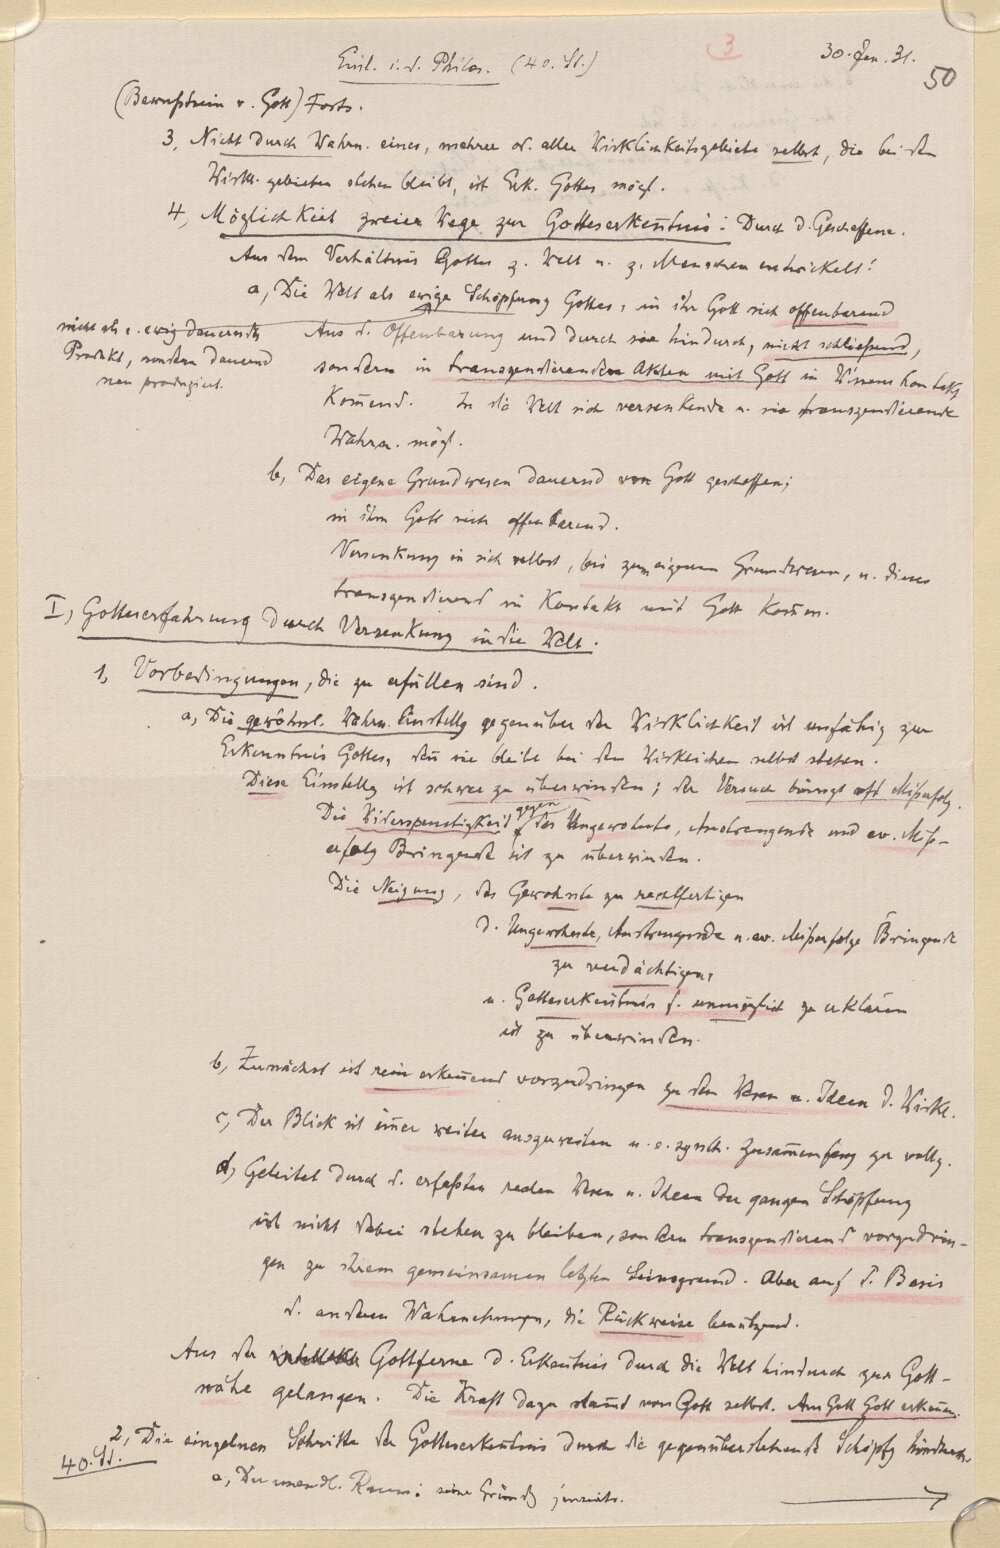 3
30. Jan. 31.
50
Einl. i. d. Philos. (40. St.)
(Bewußtsein v. Gott) Forts.
3, Nicht durch Wahrn. eines, mehrer od. aller Wirklichkeitsgebiete selbst, die bei den
Wirkl. gebieten stehen bleibt, ist Erk. Gottes mögl.
4, Möglichkeit zweier Wege zur Gotteserkentnis: Durch d. Geschaffene.
Aus dem Verhältnis Gottes z. Welt u. z. Menschen entwickelt:
a, Die Welt als ewige Schöpfung Gottes, in ihr Gott sich offenbarend
nicht als e. ewig dauerndes
Produkt, sondern dauernd
neu produziert.
Aus d. Offenbarung und durch sie hindurch, nicht schließend,
sondern in transzendierenden Akten mit Gott in Wissens Kontakt
Komend. In die Welt sich versenkende u. sie transzendierende
Wahrn. mögl.
b, Das eigene Grundwesen dauernd von Gott geschaffen;
in ihm Gott sich offenbarend.
Versenkung in sich selbst, bis zum eigenen Grundwesen, u. dieses
transzendierend in Kontakt mit Gott Komen.
I, Gotteserfahrung durch Versenkung in die Welt.
1, Vorbedingungen, die zu erfüllen sind.
a, Die gewöhnl. Wahrn. Einstellg gegenüber der Wirklichkeit ist unfähig zur
Erkenntnis Gottes, den sie bleibt bei dem Wirklichen selbst stehen.
Diese Einstellg ist schwer zu überwinden; der Versuch bringt oft Mißerfolg.
Die Widerspenstigkeit gegen das Ungewohnte, Anstrengende und ev. Miß-
erfolg Bringende ist zu überwinden.
Die Neigung, das Gewohnte zu rechtfertigen
d. Ungewohnte, Anstrengende u. ev. Mißerfolge Bringende
zu verdächtigen,
u. Gotteserkentnis f. unmöglich zu erklären
ist zu überwinden.
b, Zunächst ist rein erkenend vorzudringen zu dem Wesen u. Ideen d. Wirkl.
c, Der Blick ist imer weiter auszuweiten u. e. synth. Zusamenfassg zu vollz.
d, Geleitet durch d. erfaßten realen Wesen u. Ideen der ganzen Schöpfung
ist nicht dabei stehen zu bleiben, sondern transzendierend vorzudrin-
gen zu ihrem gemeinsamen letzten Seinsgrund. Aber auf d. Basis
d. anderen Wahrnehmungen, die Rückweise benützend.
Aus der Gottferne d. Erkentnis durch die Welt hindurch zur Gott-
nähe gelangen. Die Kraft dazu stamt von Gott selbst. Aus Gott Gott erkenen.
2, Die einzelnen Schritte der Gotteserkentnis durch die gegenüberstehende Schöpfg hindurch.
40. St.
a, Der unendl. Raum: seine Gründg jenseits.